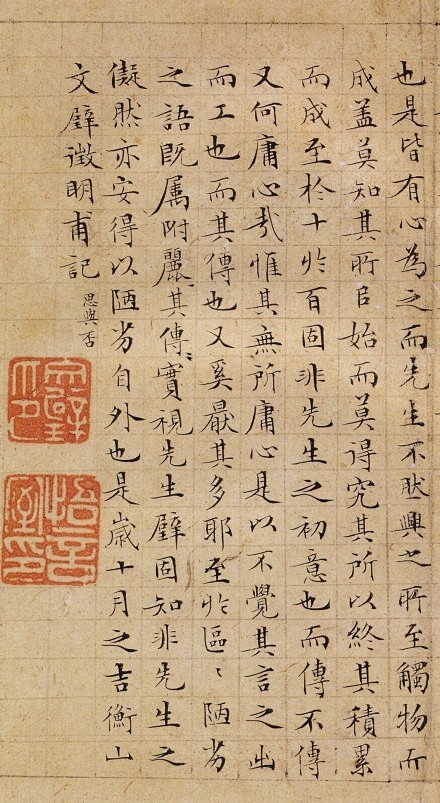 也是皆有心為之而先生不肰興之所至觸物而
成蓋莫知其所自始而莫得究其所以終其積累
而成至於十於百固非先生之初意也而傳不傳
又何庸心哉惟其無所庸心是以不覺其言之出
而工也而其傳也又奚厭其多耶至於區〻陋劣
之語既属附麗其傳實視先生璧固知非先生之
儗然亦安得以陋劣自外也是歲十月之吉衡山
文璧徵明甫記
思與否
文璧印
悟言室印